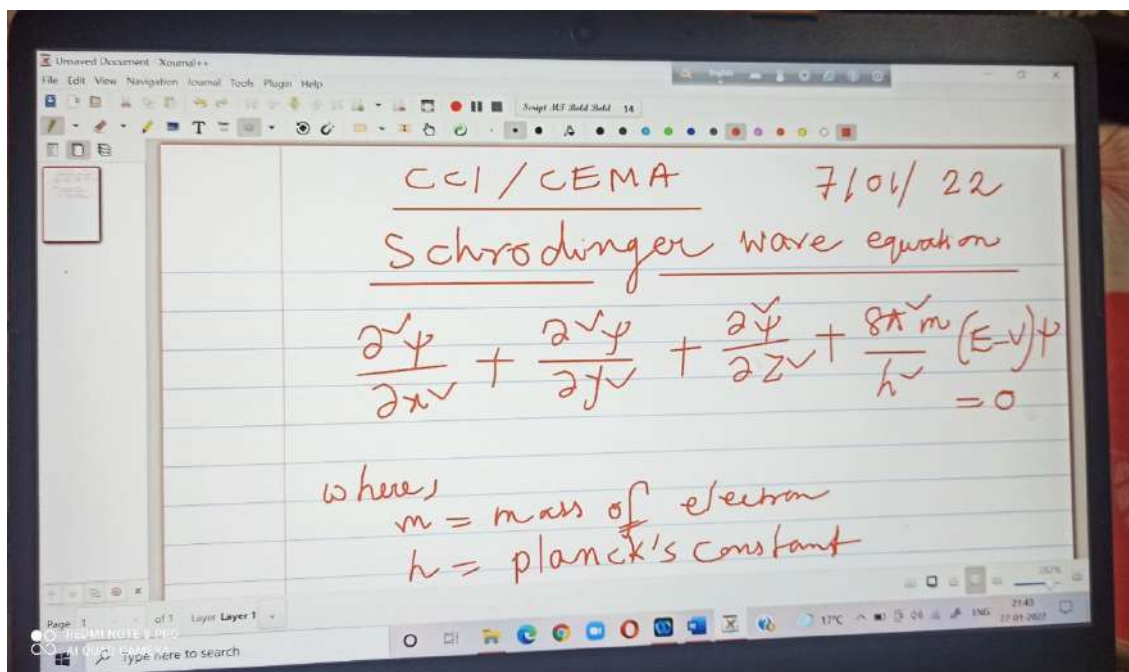 Unsaved Document - Xournal++
File Edit View Navigation Journal Tools Plugin Help
Script MT Bold Bold 14
CCI / CEMA 7/01/22
Schrodinger wave equation
∂²ψ/∂x² + ∂²ψ/∂y² + ∂²ψ/∂z² + 8π²m/h² (E-V)ψ
= 0
where,
m = mass of electron
h = planck's constant
Page 1 of 1 Layer Layer 1
REDMI NOTE 9 PRO
AI QUAD CAMERA
Type here to search
17°C ENG 21:43